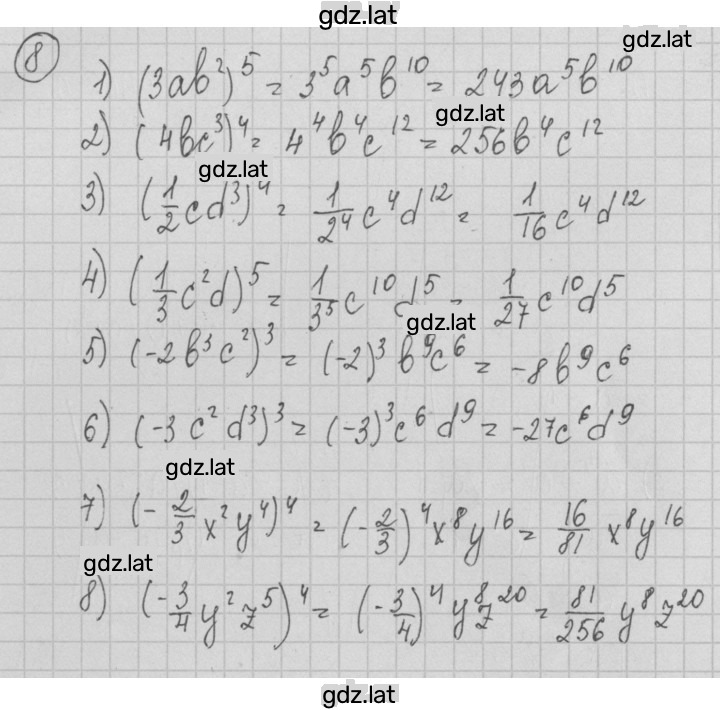 gdz.lat
gdz.lat
8
1) (3ab²)⁵ = 3⁵a⁵b¹⁰ = 243a⁵b¹⁰
gdz.lat
2) (4bc³)⁴ = 4⁴b⁴c¹² = 256b⁴c¹²
gdz.lat
3) (1/2 cd³)⁴ = 1/2⁴ c⁴d¹² = 1/16 c⁴d¹²
4) (1/3 c²d)⁵ = 1/3⁵ c¹⁰d⁵ = 1/27 c¹⁰d⁵
gdz.lat
5) (-2b³c²)³ = (-2)³b⁹c⁶ = -8b⁹c⁶
6) (-3c²d³)³ = (-3)³c⁶d⁹ = -27c⁶d⁹
gdz.lat
7) (-2/3 x²y⁴)⁴ = (-2/3)⁴x⁸y¹⁶ = 16/81 x⁸y¹⁶
gdz.lat
8) (-3/4 y²z⁵)⁴ = (-3/4)⁴y⁸z²⁰ = 81/256 y⁸z²⁰
gdz.lat